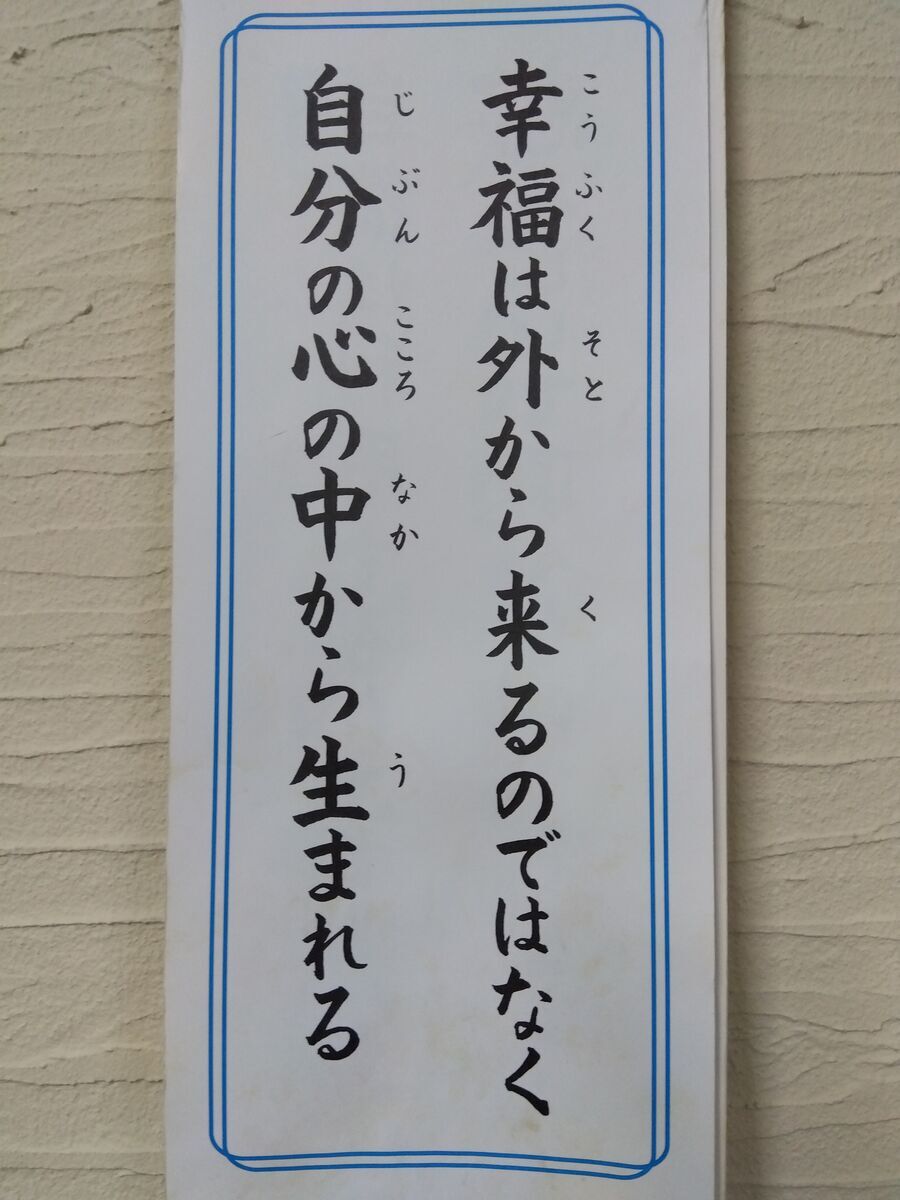 幸福は外から来るのではなく
こうふく そと く
自分の心の中から生まれる
じぶん こころ なか う